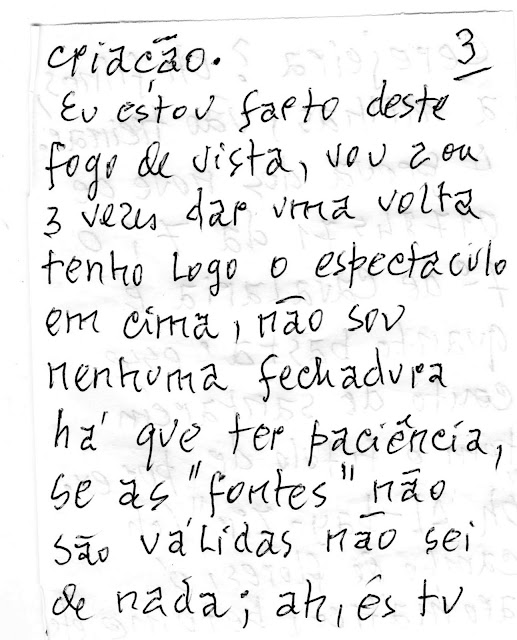 3
criação.
Eu estou farto deste
fogo de vista, vou 2 ou
3 vezes dar uma volta
tenho logo o espectaculo
em cima, não sou
nenhuma fechadura
há que ter paciência,
se as "fontes" não
são válidas não sei
de nada; ah, és tu